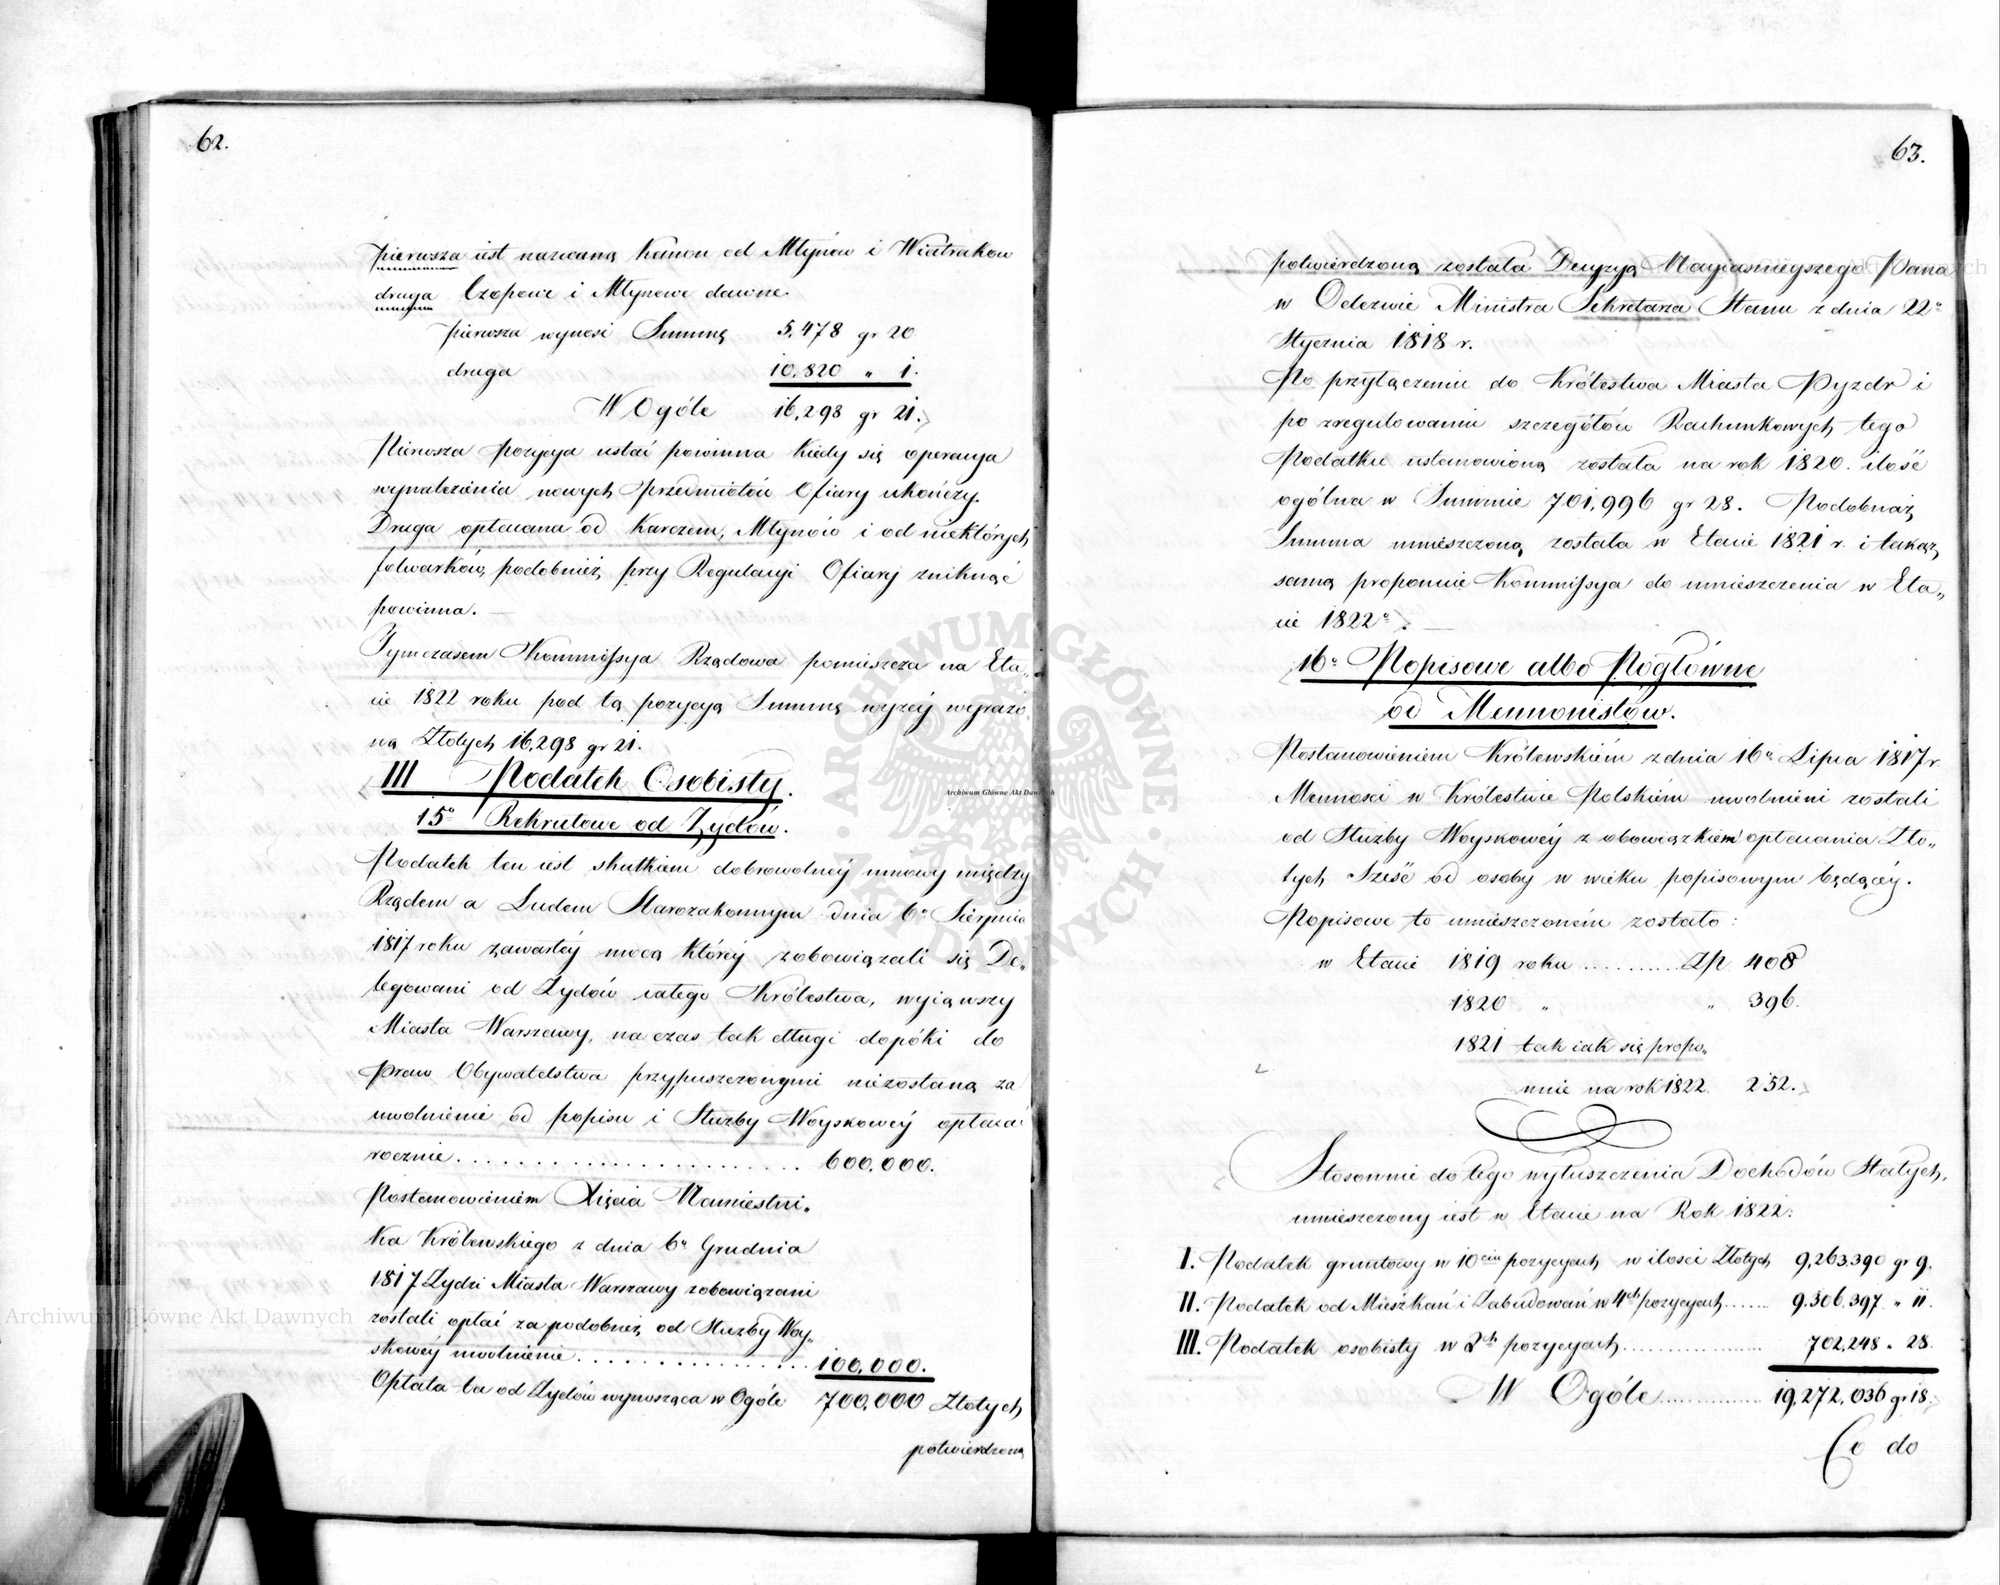 62.
pierwsza iest nazwaną Kanon od Młynów i Wiatraków
druga Czopowe i Młynowe dawne.
pierwsza wynosi Summę 5,478 gr 20
druga 10,820 „ 1.
W Ogóle 16,298 gr 21.
Pierwsza pozycya ustać powinna kiedy się operacya
wynalezienia nowych przedmiotów Ofiary ukończy.
Druga opłacana od Karczem, Młynów i od niektórych
folwarków, podobnież przy Regulacyi Ofiary zniknąć
powinna. —
Tymczasem Kommissya Rządowa pomieszcza na Eta„
cie 1822 roku pod tą pozycyą Summę wyżey wyrażo„
ną Złotych 16,298 gr 21.
III Podatek Osobisty.
15o Rekrutowe od Żydów.
Podatek ten iest skutkiem dobrowolney umowy między
Rządem a Ludem Starozakonnym dnia 6o Sierpnia
1817 roku zawartéy mocą któréy zobowiązali się De„
legowani od Żydów całego Królestwa, wyiąwszy
Miasta Warszawy, na czas tak długi dopóki do
praw Obywatelstwa przypuszczonymi niezostaną za
uwolnienie od popisu i Służby Woyskowéy opłacać
rocznie . . . . . . . . . . . . . . . . . . . . . 600,000.
Postanowieniem Xięcia Namiestni„
ka Królewskiego z dnia 6o Grudnia
1817 Żydzi Miasta Warszawy zobowiązani
zostali opłać za podobnież od Służby Woy„
skowéy uwolnienie . . . . . . . . . . . . . . 100,000.
Opłata ta od Żydów wynosząca w Ogóle 700,000 Złotych
potwierdzoną
63.
potwierdzoną została Decyzyą Nayiaśnieyszego Pana
w Odezwie Ministra Sekretarza Stanu z dnia 22o
Stycznia 1818 r.
Po przyłączeniu do Królestwa Miasta Pyzdr i
po zregulowaniu szczegółów Rachunkowych tego
Podatku ustanowioną została na rok 1820. ilość
ogólna w Summie 701,996 gr 28. Podobnaż
Summa umieszczoną została w Etacie 1821 r. i takąż
samą proponuie Kommissya do umieszczenia w Eta„
cie 1822o. —
16o Popisowe albo Pogłówne
od Mennonistów.
Postanowieniem Królewskiém z dnia 16o Lipca 1817 r.
Mennosci w Królestwie Polskiém uwolnieni zostali
od Służby Woyskowéy z obowiązkiem opłacania Zło„
tych Sześć od osoby w wieku popisowym będącéy.
Popisowe to umieszczoném zostało:
w Etacie 1819 roku . . . . . . . . . . Zp 408
1820 „ „ 396.
1821 tak iak się propo„
nuie na rok 1822. 252.
Stosownie do tego wyłuszczenia Dochodów Stałych,
umieszczony iest w Etacie na Rok 1822:
I. Podatek gruntowy w 10ciu pozycyach w ilości Złotych 9,263,390 gr 9.
II. Podatek od Mieszkań i Zabudowań w 4ch pozycyach . . . . . . 9,306,397 „ 11.
III. Podatek osobisty w 2ch pozycyach . . . . . . . . . . . . . . . . . 702,248 „ 28.
W Ogóle . . . . . . . . . . . . . . 19,272,036 gr 18.
Co do
ARCHIWUM GŁÓWNE AKT DAWNYCH
Archiwum Główne Akt Dawnych
Archiwum Główne Akt Dawnych